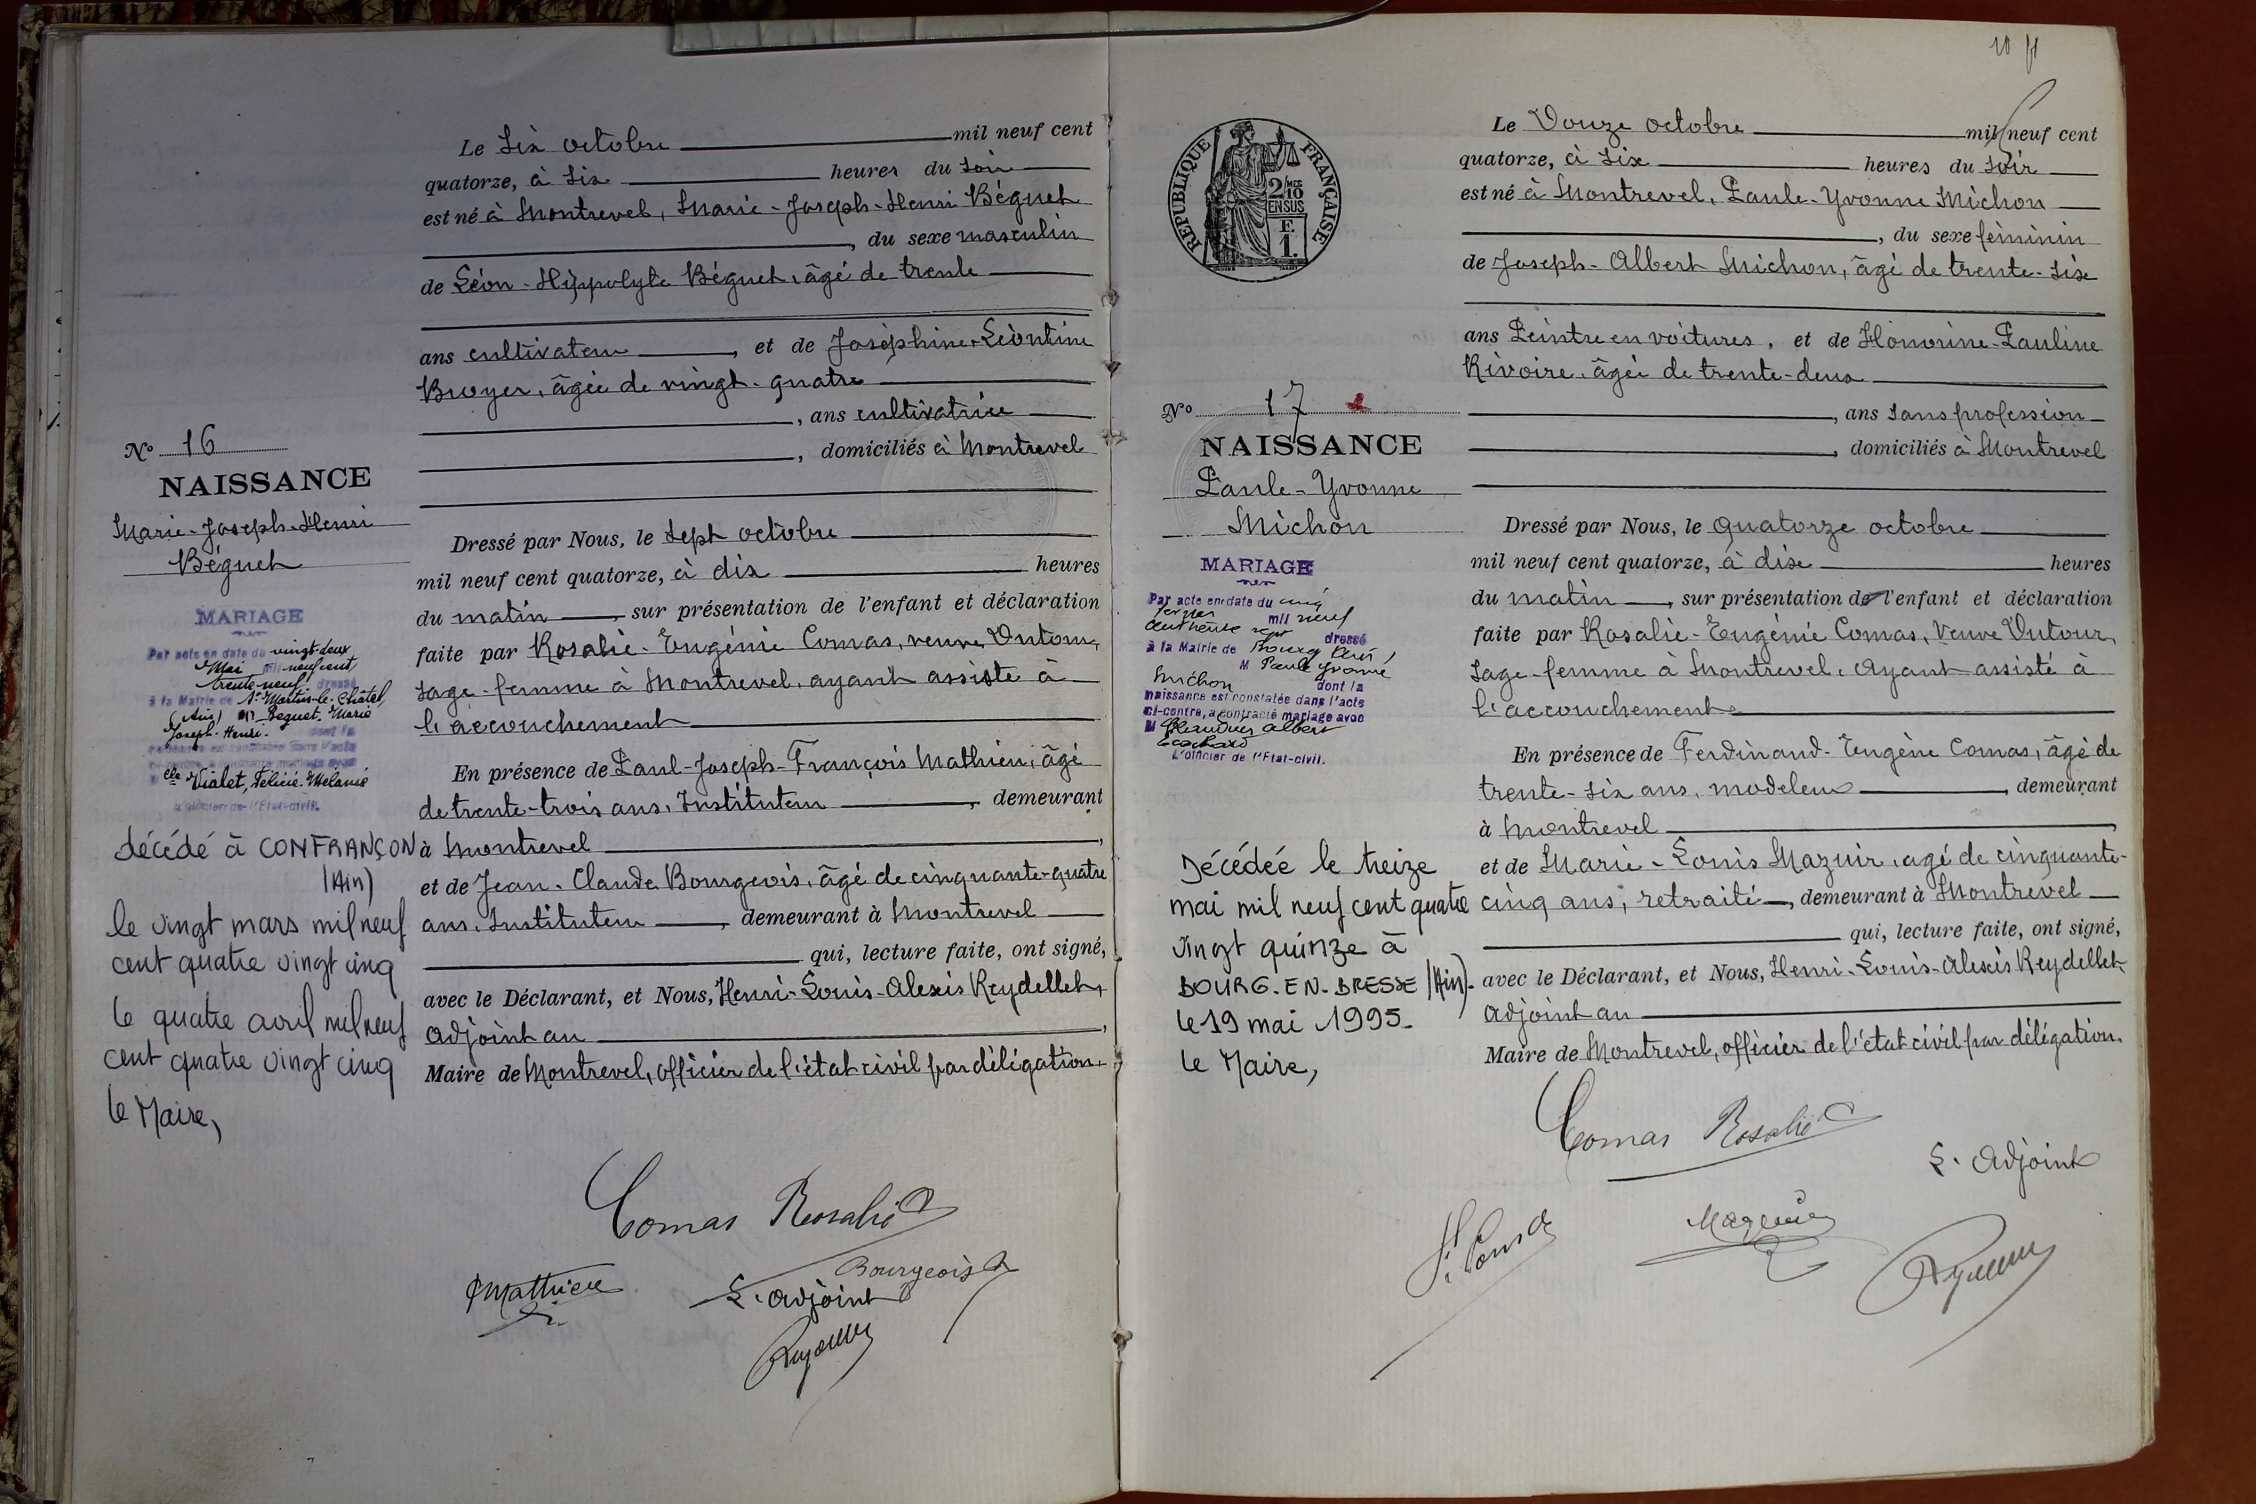 Le Six octobre mil neuf cent
quatorze, à six heures du soir
est né à Montrevel, Marie-Joseph-Henri Béguet
, du sexe masculin
de Léon-Hippolyte Béguet, âgé de trente
ans cultivateur, et de Joséphine-Léontine
Broyer, âgée de vingt-quatre
, ans cultivatrice
, domiciliés à Montrevel
No 16
NAISSANCE
Marie-Joseph-Henri
Béguet
Dressé par Nous, le sept octobre
mil neuf cent quatorze, à dix heures
du matin, sur présentation de l'enfant et déclaration
faite par Rosalie-Eugénie Comas, veuve Dutour,
sage-femme à Montrevel, ayant assisté à
l'accouchement
En présence de Paul-Joseph-François Mathieu, âgé
de trente-trois ans, Instituteur, demeurant
à Montrevel,
et de Jean-Claude Bourgeois, âgé de cinquante-quatre
ans, Instituteur, demeurant à Montrevel
qui, lecture faite, ont signé,
avec le Déclarant, et Nous, Henri-Louis-Alexis Reydellet,
adjoint au,
Maire de Montrevel, officier de l'état civil par délégation.
MARIAGE
Par acte en date du vingt-deux
Mai mil neuf cent
trente neuf dressé
à la Mairie de St Martin-le-Châtel
(Ain) M Béguet Marie
Joseph-Henri. dont la
elle Vialet, Félicie-Mélanie
L'officier de l'Etat-civil.
décédé à CONFRANÇON
(Ain)
le vingt mars mil neuf
cent quatre vingt cinq
le quatre avril mil neuf
cent quatre vingt cinq
le Maire,
Comas Rosalie
Mathieu
Bourgeois
L'adjoint
10
Le Douze octobre mil neuf cent
quatorze, à six heures du soir
est né à Montrevel, Paule-Yvonne Michon
, du sexe féminin
de Joseph-Albert Michon, âgé de trente-six
ans Peintre en voitures, et de Honorine-Pauline
Rivoire, âgée de trente-deux
, ans sans profession
, domiciliés à Montrevel
RÉPUBLIQUE FRANÇAISE
2/10 EN SUS
E.
1.
No 17
NAISSANCE
Paule-Yvonne
Michon
Dressé par Nous, le quatorze octobre
mil neuf cent quatorze, à dix heures
du matin, sur présentation de l'enfant et déclaration
faite par Rosalie-Eugénie Comas, Veuve Dutour,
sage-femme à Montrevel, ayant assisté à
l'accouchement
En présence de Ferdinand-Eugène Comas, âgé de
trente-six ans, modeleur, demeurant
à Montrevel,
et de Marie-Louis Mazuir, agé de cinquante-
cinq ans, retraité, demeurant à Montrevel
qui, lecture faite, ont signé,
avec le Déclarant, et Nous, Henri-Louis-Alexis Reydellet,
adjoint au
Maire de Montrevel, officier de l'état civil par délégation.
MARIAGE
Par acte en date du cinq
mil neuf
cent trente sept dressé
à la Mairie de Bourg (Ain)
M Paule Yvonne
Michon dont la
naissance est constatée dans l'acte
ci-contre, a contracté mariage avec
M Claudius Albert
L'officier de l'Etat-civil.
Décédée le treize
mai mil neuf cent quatre
vingt quinze à
BOURG-EN-BRESSE (Ain).
le 19 mai 1995.
le Maire,
Comas Rosalie
L'adjoint
Mazuir